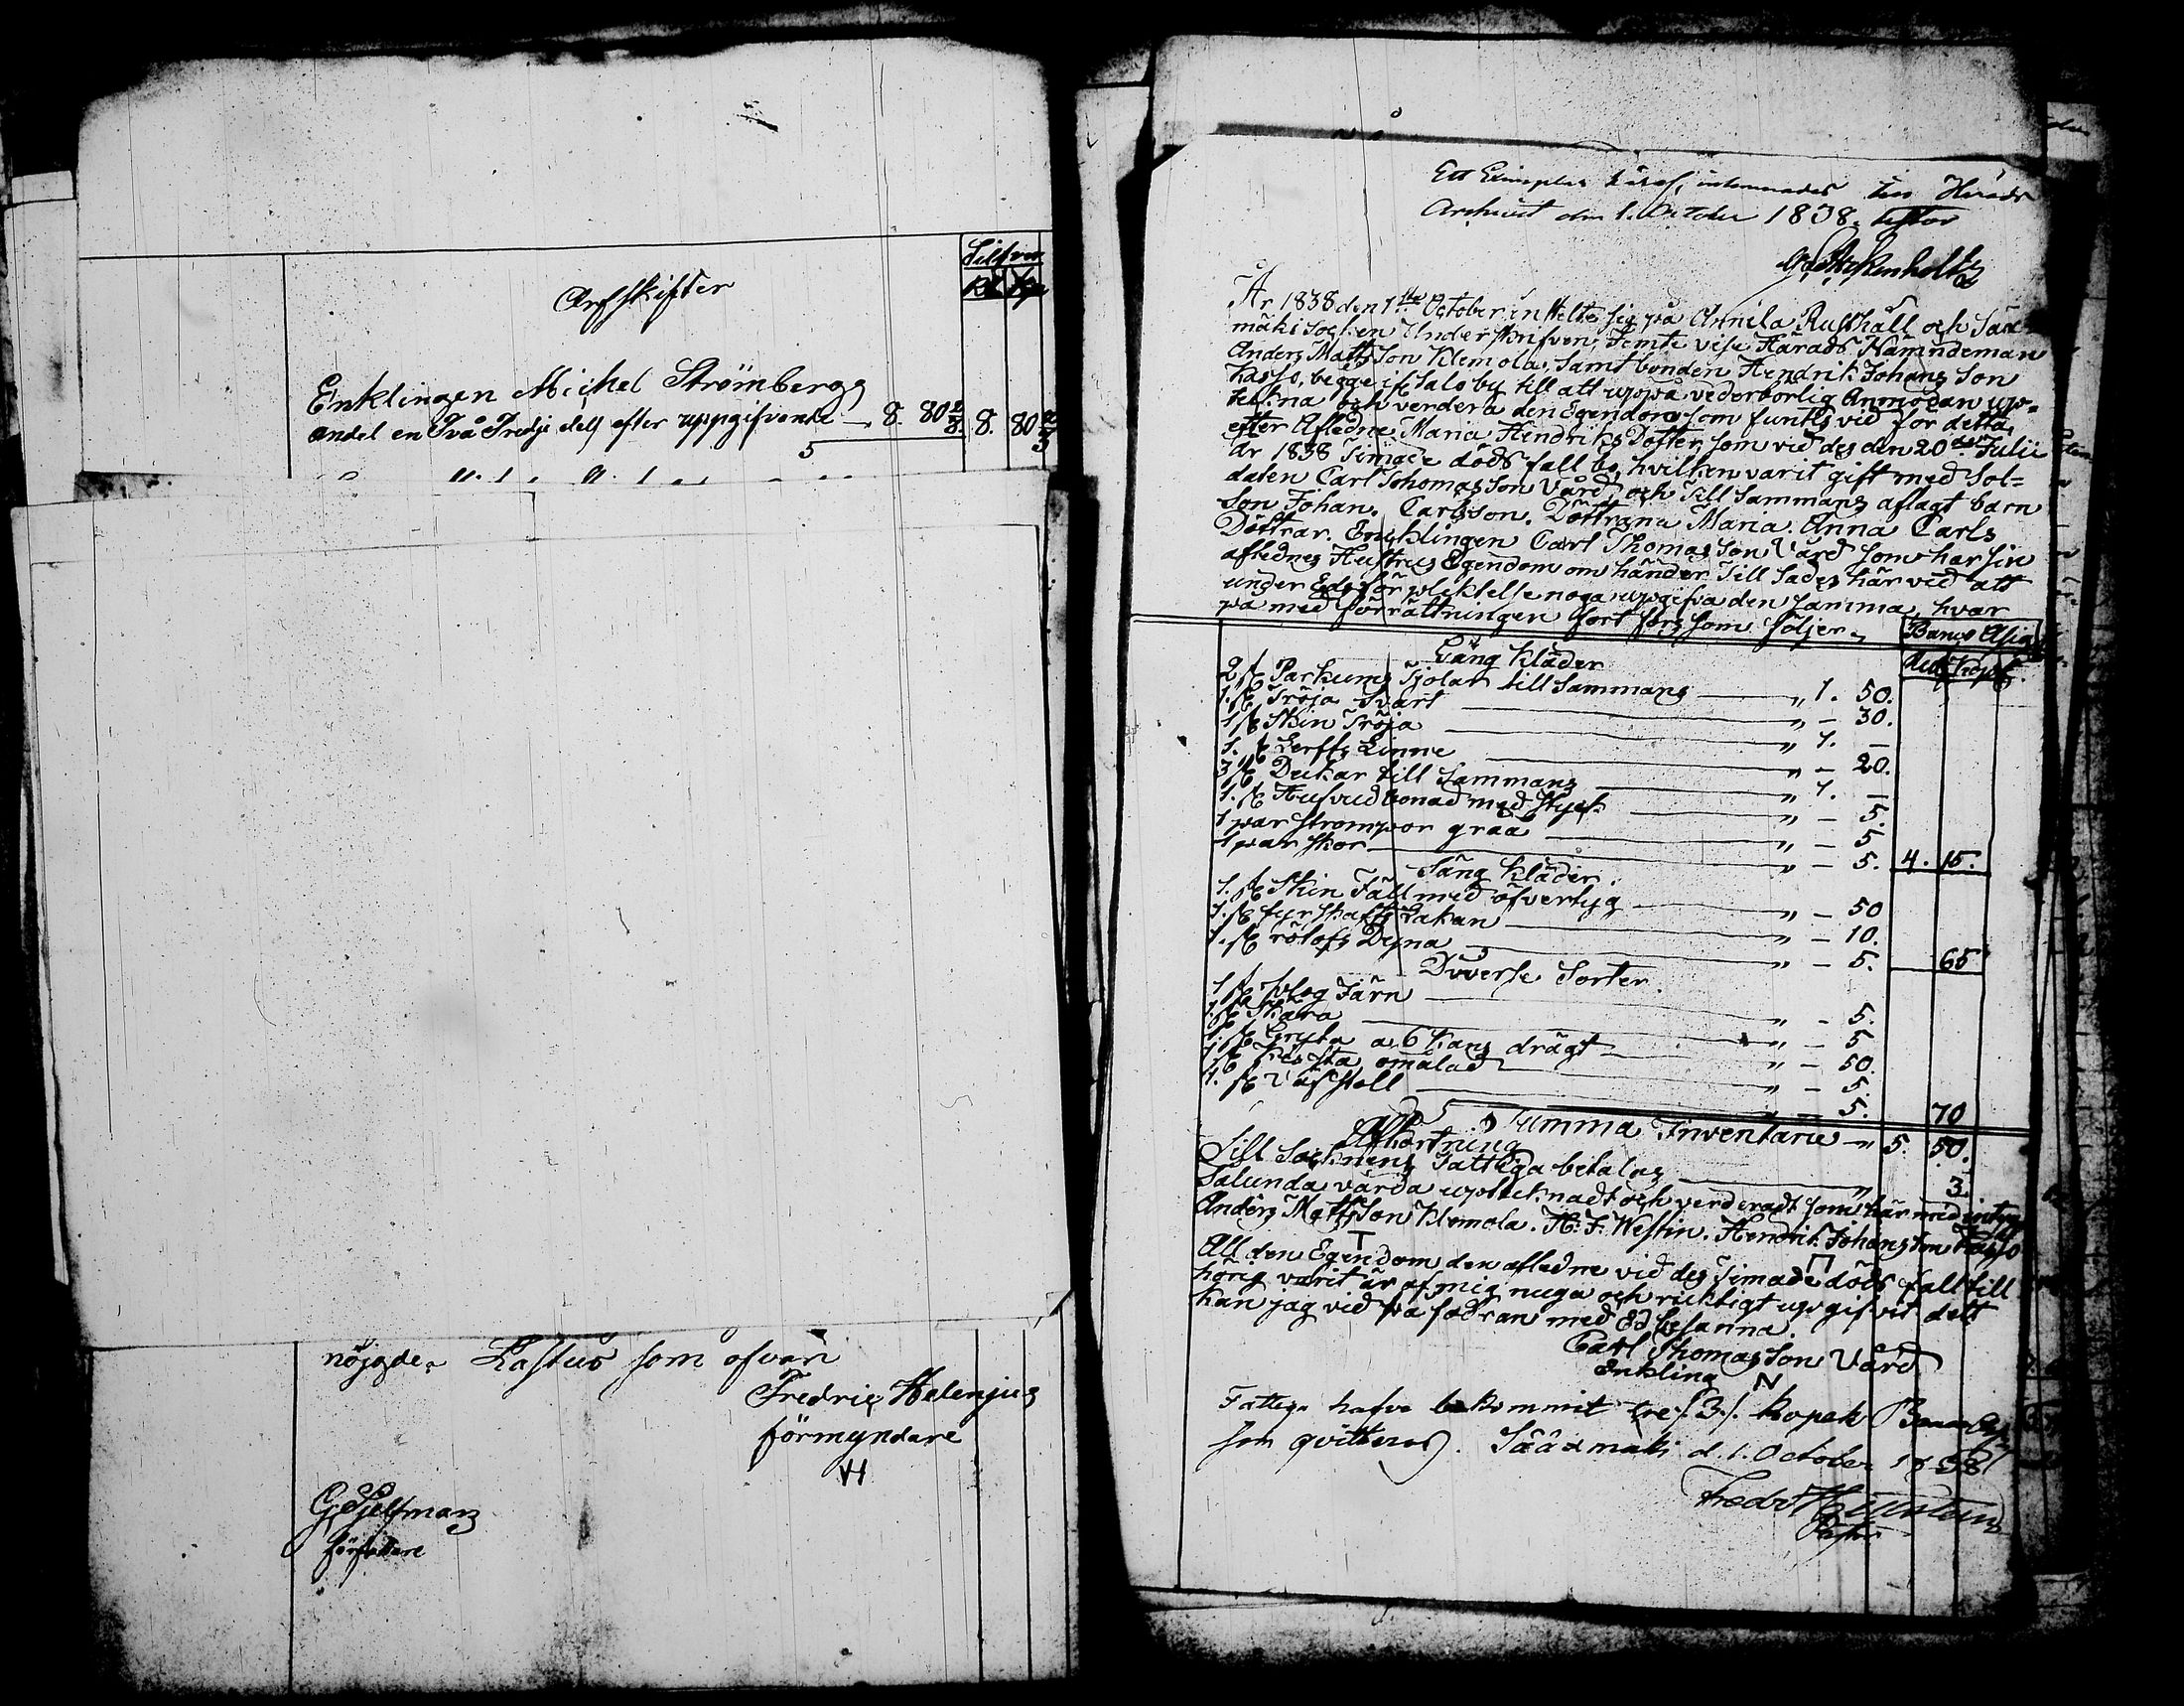 Arfskifter
Silfver
Rbl Kop
Enklingen Michel Strömberg
andel en Två Tredje dels efter uppgifvande — 8. 80 2/3 8. 80 2/3
5
nöjgde. Lastus som ofvan
Fredric Helenjus
förmyndare
G. Hjeltman
författare
Ett Exemplar häraf, inlemnades till Härads
Archivet den 1. October 1838. testor
År 1838 den 1ste October instelte sig på Annila Rusthåll och Säx-
mäki Socken Underskrifven, Temte vise Härads Nämndeman
Anders Matts Son Klemola, Samt bonden Hendrik Johans Son
Kasso, begge if. Salo by till att uppå vederbörlig Anmodan up-
tekna och verdera den Egendom som funtes vid för detta,
efter Afledne Maria Hendriks Dotter, som vid des den 20de Julii
år 1838 Timade döds fall bo, hvilken varit gift med Sol-
daten Carl Thomas Son Vård, och Till Sammans aflagt barn
Son Johan. Carlsson. Döttrana Maria. Anna Carls
Döttrar. Encklingen Carl Thomas Son Vård som har sin
aflednes Hustrus Egendom om händer Till Sades här vid att
under Eds förpliktelse noga upgifva den Samma, hvar
på med förrättningen fort fors som följer.
Banco Asig
Rub. Kopek
Gång Kläder
2 st Parkums Tjolar till Sammans — „ 1. 50.
1. st Tröja Svart — „ — 30.
1 st Skin Tröja — „ 1. —
1. st Lerfts Linne — „ — 20.
3 st Dukar till Sammans — „ 1. —
1. st Hufvud bonad med Styck — „ — 5.
1 par Strompor gråa — „ — 5
1 par Skor — „ — 5. 4. 15.
Säng Kläder.
1. st Skin Fäll med öfvertyg — „ — 50
1. st fyr Skafts Lakan — „ — 10.
1. st rölofs Dyna — „ — 5. 65
Diverse Sorter.
1 st plog Järn — „ — 5.
1. st Skära — „ — 5
1. st Gryta a 6 Kans drägt — „ — 50.
1. st Kista omålad — „ — 5.
1. st Väfstoll — 5. 70
Summa Inventarie — „ 5. 50.
Afkortning
Till Socknens Fattiga betalas — „ 3.
Salunda vårda uptecknadt och verderadt som här med intygas
Anders Matts Son Klemola. H: F. Westin. Hendrik Johans Son Kasso
All den Egendom den afledne vid des Timade döds fall till
hörig varit är af mig nuga och ricktigt upgifvit dett
kan jag vid på fodran med Ed besanna.
Carl Thomas Son Vård
Enkling
Fattiga hafva bekommit tre /:3:/. Kopek Banco Asig
som qvitteras. Sääxmäki d. 1. October 1838
Pastor